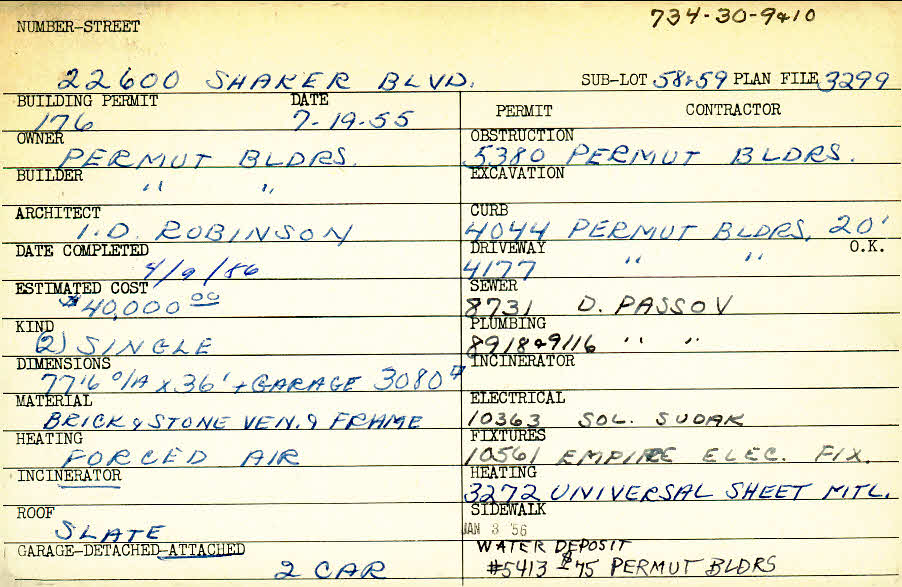 734-30-9&10
NUMBER-STREET
22600 SHAKER BLVD. SUB-LOT 58&59 PLAN FILE 3299
BUILDING PERMIT DATE
176 7-19-55
PERMIT CONTRACTOR
OWNER
PERMUT BLDRS.
OBSTRUCTION
5380 PERMUT BLDRS.
BUILDER
" "
EXCAVATION
ARCHITECT
I.D. ROBINSON
CURB
4044 PERMUT BLDRS, 20'
DATE COMPLETED
4/9/56
DRIVEWAY O.K.
4177 " "
ESTIMATED COST
$40,000 00
SEWER
8731 D. PASSOV
KIND
(2) SINGLE
PLUMBING
8918&9116 " "
DIMENSIONS
77'6 O/A x 36' + GARAGE 3080
INCINERATOR
MATERIAL
BRICK & STONE VEN. & FRAME
ELECTRICAL
10363 SOL. SUDAK
HEATING
FORCED AIR
FIXTURES
10561 EMPIRE ELEC. FIX.
INCINERATOR
HEATING
3272 UNIVERSAL SHEET MTL.
ROOF
SLATE
SIDEWALK
JAN 3 '56
GARAGE-DETACHED-ATTACHED
2 CAR
WATER DEPOSIT
#5413 $75 PERMUT BLDRS